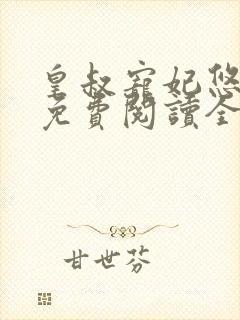 皇叔寵妃悠
免費閱讀全
甘世芬